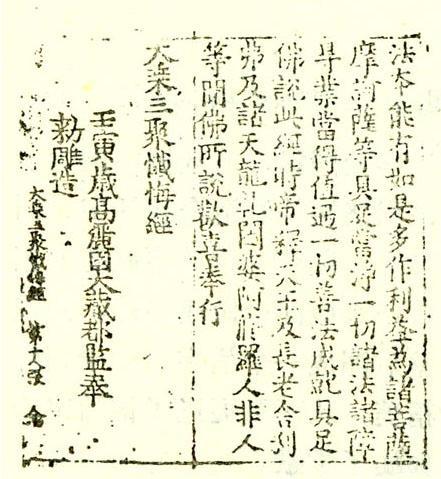 法本能有如是多作利益為諸菩薩
摩訶薩等具足當淨一切諸法諸障
㝵業當得值遇一切善法成就具足
佛說此經時帝釋天王及長老舍利
弗及諸天龍乹闥婆阿脩羅人非人
等聞佛所說歡喜奉行
大乗三聚懺悔經
壬寅歲高麗國大藏都監奉
勅雕造
大乗三聚懺悔經 第十八張